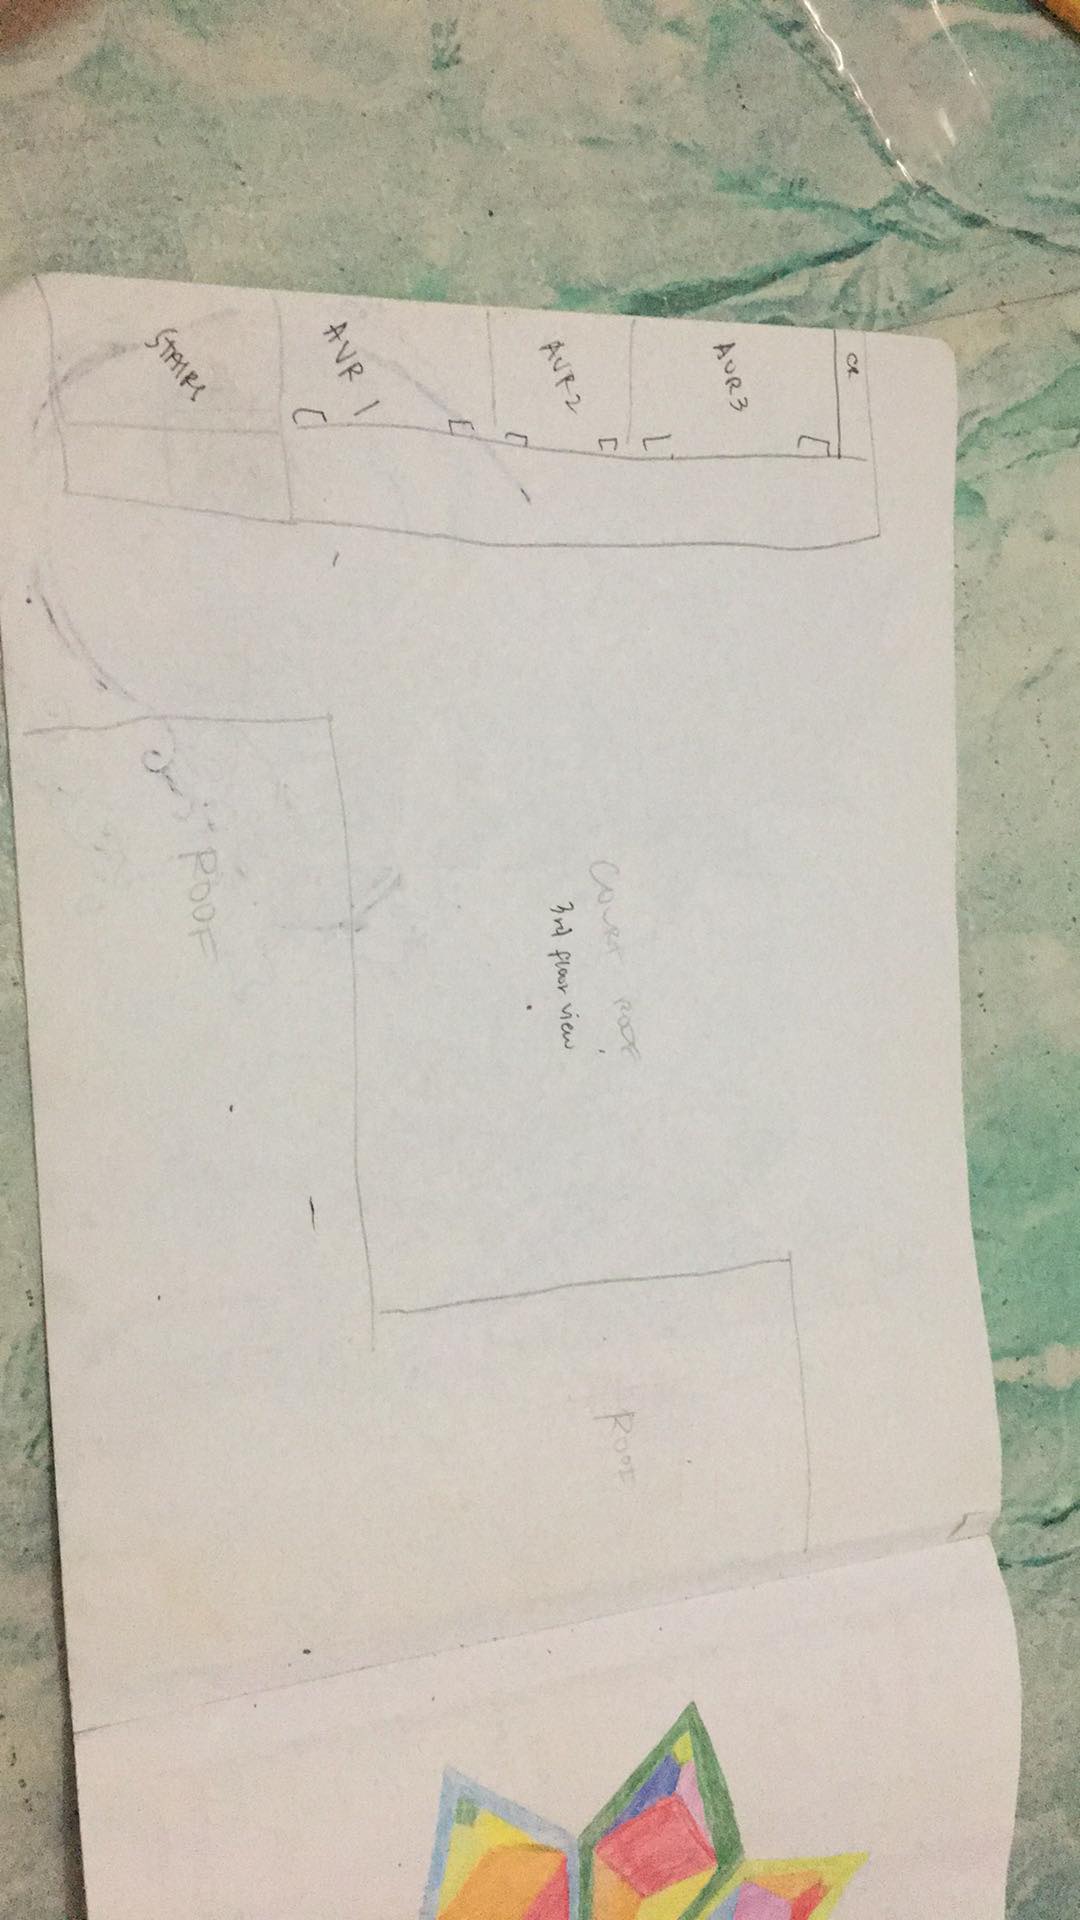 CR
AVR3
AVR2
AVR 1
STAIRS
COURT ROOF
3rd floor view
ROOF
ROOF